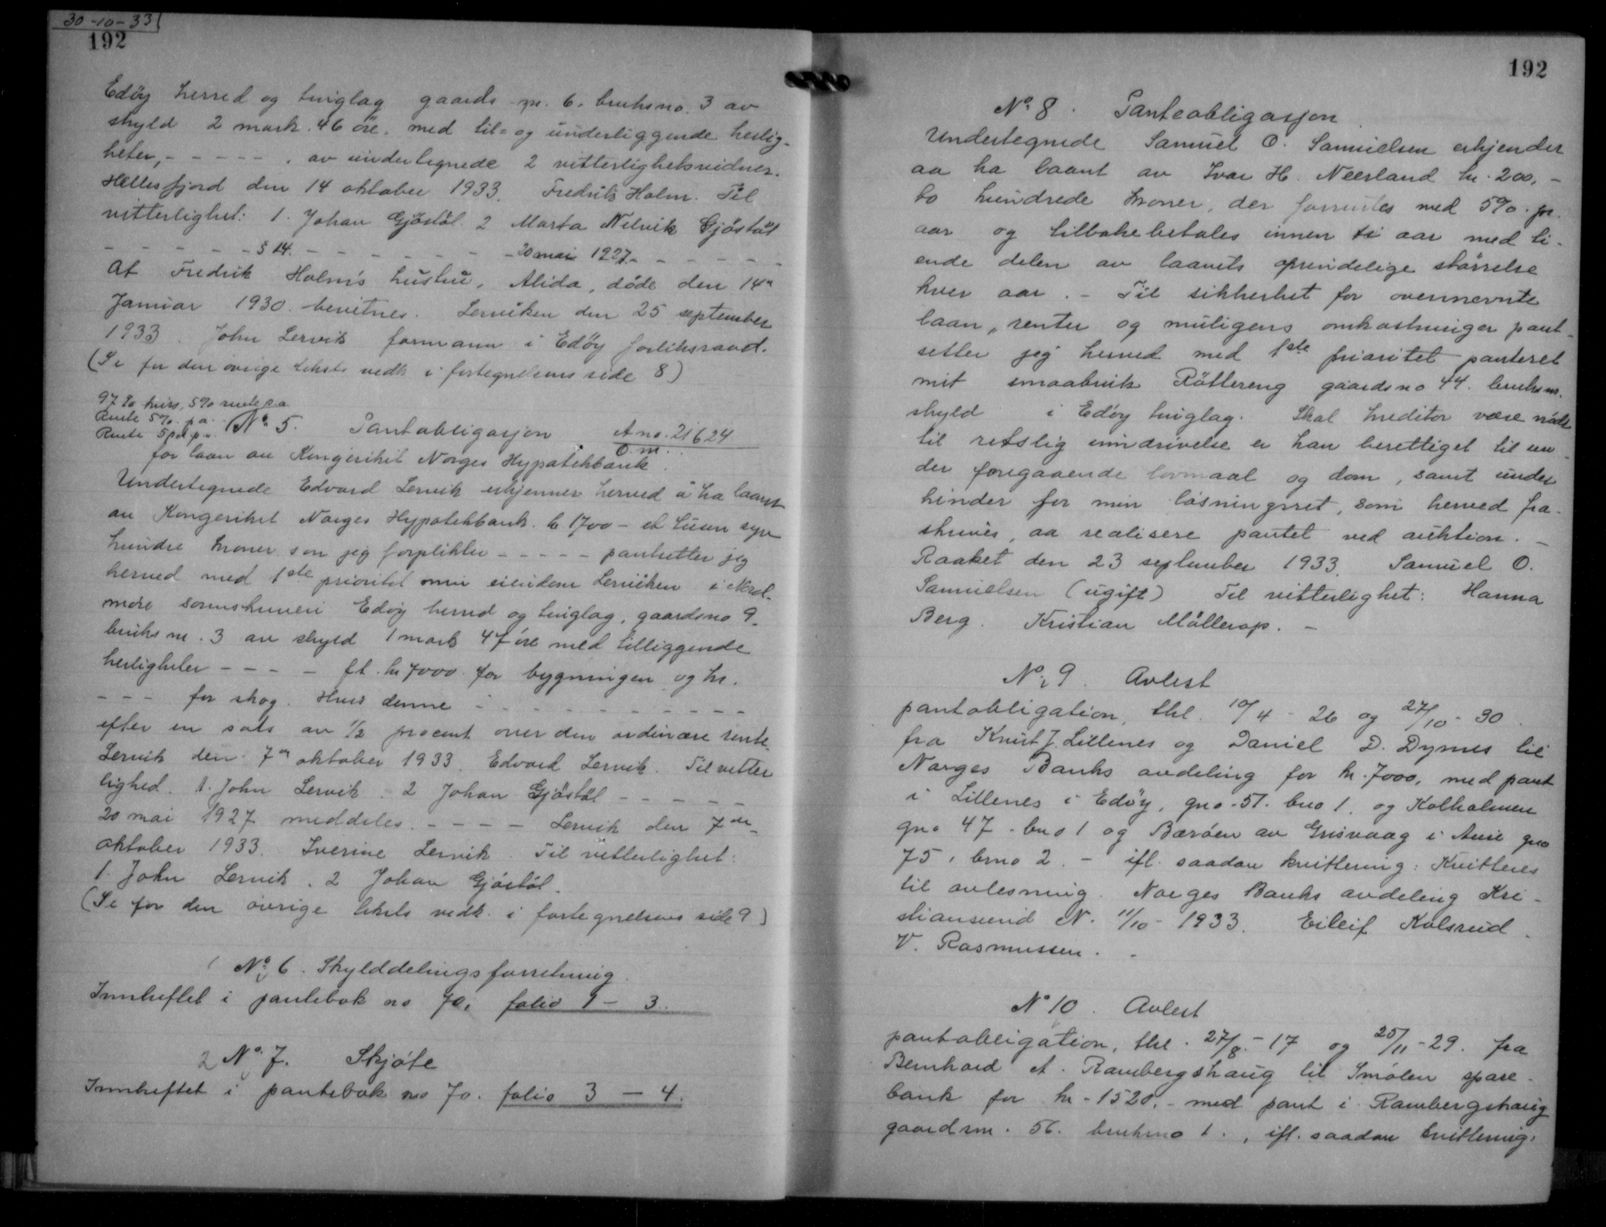 30-10-33
192
Edøy herred og tinglag gaards nr. 6. bruksno. 3 av
skyld 2 mark 46 öre. med til- og underliggende herlig-
heter, - - - - - . av undertegnede 2 vitterlighetsvidner.
Hellesfjord den 14 oktober 1933. Fredrik Holm. Til
vitterlighet: 1. Johan Gjöstöl. 2 Marta Nelvik Gjöstöl
- - - - - - § 14. - - - - - - - 20 mai 1927 - - - - - -
At Fredrik Holm's hustru, Alida, døde den 14de
Januar 1930 bevitnes. Lerviken den 25 september
1933. John Lervik formann i Edøy forliksraad.
(Se for den øvrige tekst vedk i fortegnelsens side 8)
97 % kurs, 5% rente p.a.
Rente 5% p.a.
Rente 5 pct p.a. No. 5. Pantobligasjon A no. 21624
O.m.
for laan av Kongeriket Norges Hypotekbank.
Undertegnede Edvard Lervik erkjenner herved å ha laant
av Kongeriket Norges Hypotekbank kr 1700 - et tusen syv
hundre kroner som jeg forplikter - - - - - pantsetter jeg
herved med 1ste prioritet min eiendom Lerviken i Nord-
møre sorenskriveri Edøy herred og tinglag, gaardsno 9.
bruks nr. 3 av skyld 1 mark 47 öre med tilliggende
herligheter - - - - - ft. kr 7000 for bygningen og kr.
- - - for skog. Hvis denne - - - - - - - - - -
efter en sats av 1/2 procent over den ordinære rente.
Lervik den 7de oktober 1933. Edvard Lervik. Til vitter
lighed. 1. John Lervik. 2 Johan Gjöstöl - - - - -
20 mai 1927 meddeles. - - - - - Lervik den 7de
oktober 1933. Iverine Lervik. Til vitterlighet:
1. John Lervik. 2 Johan Gjöstöl.
(Se for den øvrige tekst vedk. i fortegnelsens side 9)
1 No. 6. Skylddelingsforretning.
Innheftet i pantebok no 70, folio 1 - 3.
2 No. 7. Skjøte
Innheftet i pantebok no 70. folio 3 - 4.
192
No. 8. Panteobligasjon.
Undertegnede Samuel O. Samuelsen erkjender
aa ha laant av Ivar H. Neerland kr. 200,-
to hundrede kroner, der forrentes med 5% pr.
aar og tilbakebetales innen ti aar med ti-
ende delen av laanets oprindelige størrelse
hver aar. - Til sikkerhet for ovennevnte
laan, renter og muligens omkostninger pant-
setter jeg herved med 1ste prioritet panteret
mit smaabruk Röttereng gaardsno 44. bruksnr.
skyld i Edøy tinglag. Skal kreditor være nødt
til retslig inndrivelse er han berettiget til un-
der foregaaende lovmaal og dom, samt under
hinder for min løsningsret, som herved fra-
skrives, aa realisere pantet ved auktion. -
Raaket den 23 september 1933. Samuel O.
Samuelsen (ugift) Til vitterlighet: Hanna
Berg. Kristian Møllerop. -
No. 9. Avlest
pantobligation, thl. 10/4 - 26 og 27/10 - 30.
fra Knut J. Lillenes og Daniel D. Dyrnes til
Norges Banks avdeling for kr. 7000, med pant
i Lillenes i Edøy, gno. 57. bno 1. og Kolholmen
gno 47. bno 1 og Barøen av Grisvaag i Aure gno
75, brno 2. - ifl. saadan kvittering: Kvitteres
til avlesning. Norges Banks avdeling Kri-
stiansund N. 11/10 - 1933. Eileif Kolsrud.
V. Rasmussen.
No 10. Avlest
pantobligation, thl. 27/8 - 17 og 25/11 - 29. fra
Bernhard A. Rambergshaug til Smølen spare-
bank for kr - 1520,- med pant i Rambergshaug
gaardsnr. 56. bruksno 1., ifl. saadan kvittering: